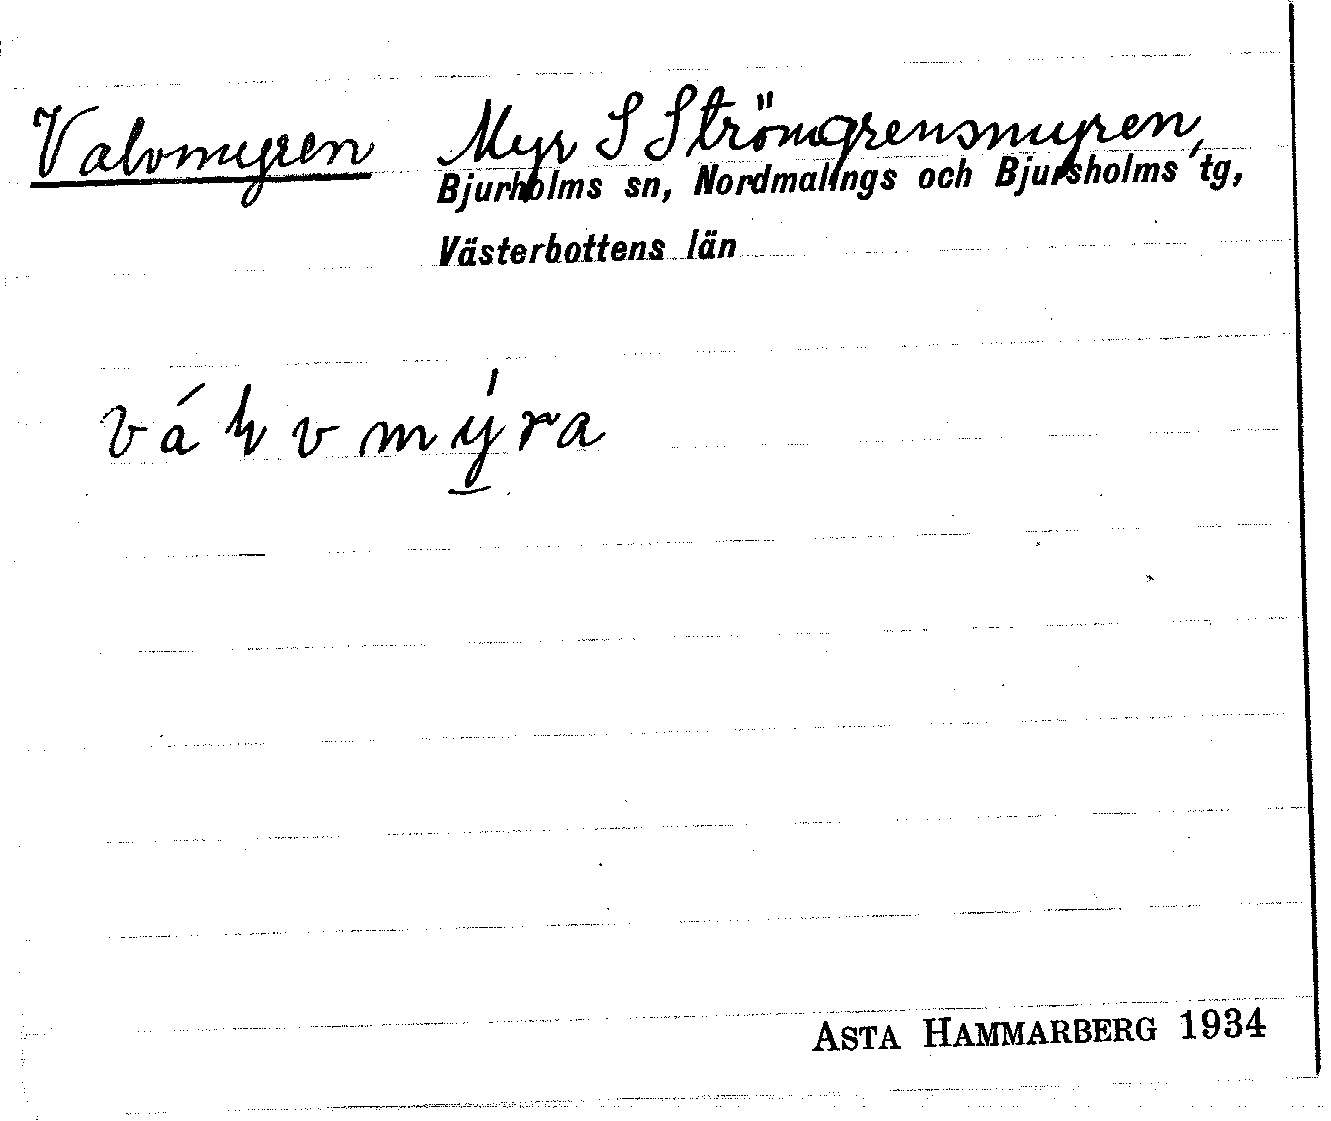 Valvmyren Myr S Strömgrensmyren,
Bjurholms sn, Nordmalings och Bjursholms tg,
Västerbottens län
ASTA HAMMARBERG 1934